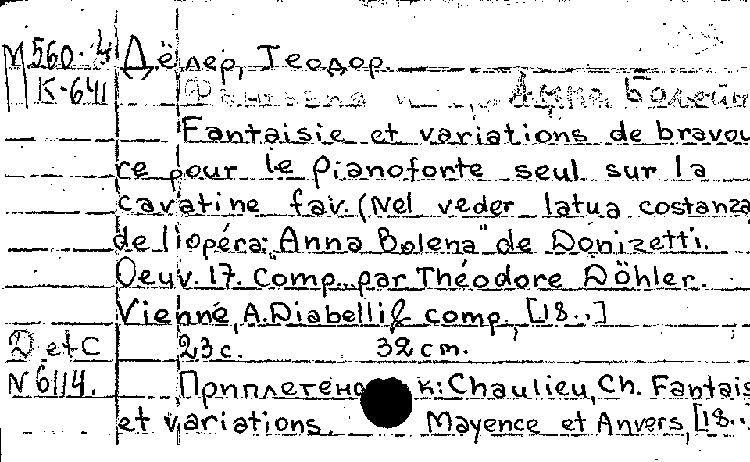 М 560-4 Дёлер, Теодор
К-641 Фантазия Анна Болейн
Fantaisie et variations de bravou
re pour le pianoforte seul sur la
cavatine fav. (Nel veder latua costanza
de l'opéra: "Anna Bolena" de Donizetti.
Oeuv. 17. Comp. par Théodore Döhler.
Vienne, A. Diabelli & comp., [18..]
D et C 23 с. 32 cm.
N 6114. Приплетено к: Chaulieu, Ch. Fantais
et variations. Mayence et Anvers, [18..